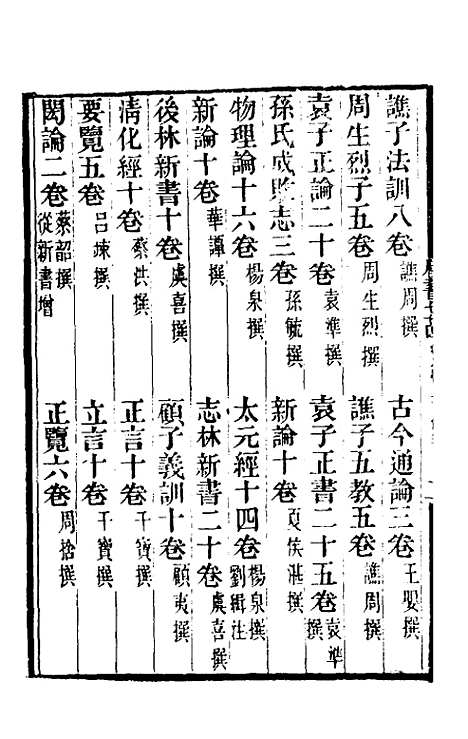 譙子法訓八卷譙周撰　古今通論三卷王嬰撰
周生烈子五卷周生烈撰　譙子五教五卷譙周撰
袁子正論二十卷袁準撰　袁子正書二十五卷袁準撰
孫氏成敗志三卷孫毓撰　新論十卷夏侯湛撰
物理論十六卷楊泉撰　太元經十四卷楊泉撰劉緝注
新論十卷華譚撰　志林新書二十卷虞喜撰
後林新書十卷虞喜撰　顧子義訓十卷顧夷撰
清化經十卷蔡洪撰　正言十卷干寶撰
要覽五卷呂竦撰　立言十卷干寶撰
閎論二卷蔡韶撰從新書增　正覽六卷周捨撰